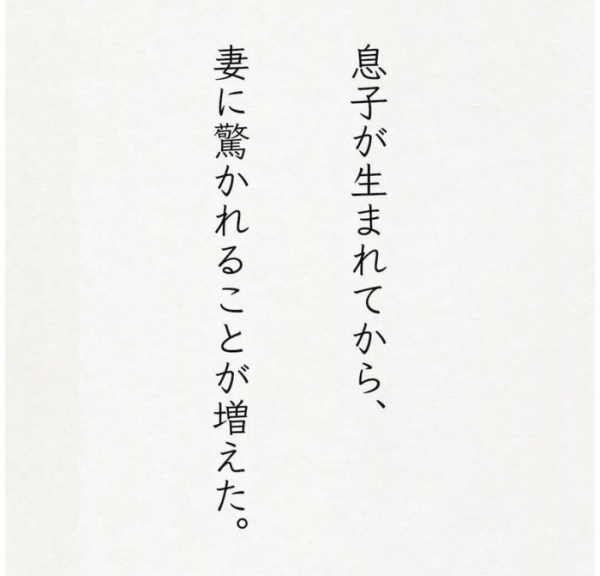 息子が生まれてから、
妻に驚かれることが増えた。